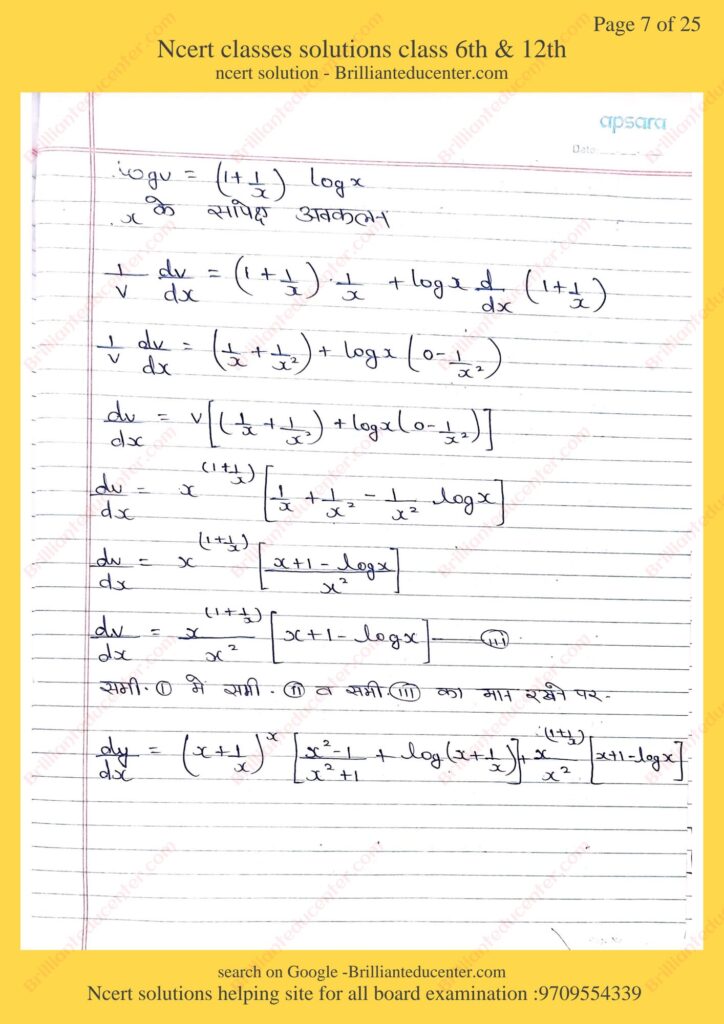 Page 7 of 25
Ncert classes solutions class 6th & 12th
ncert solution - Brillianteducenter.com
apsara
Date
logv = (1+1/x) logx
x के सापेक्ष अवकलन
1/v dv/dx = (1+1/x)·1/x + logx d/dx (1+1/x)
1/v dv/dx = (1/x + 1/x²) + logx (0-1/x²)
dv/dx = v[(1/x + 1/x²) + logx(0-1/x²)]
dv/dx = x^(1+1/x) [1/x + 1/x² - 1/x² logx]
dv/dx = x^(1+1/x) [(x+1-logx)/x²]
dv/dx = x^(1+1/x)/x² [x+1-logx] — (iii)
समी. (i) मे समी. (ii) व समी. (iii) का मान रखने पर-
dy/dx = (x+1/x)^x [(x²-1)/(x²+1) + log(x+1/x)] + x^(1+1/x)/x² [x+1-logx]
search on Google -Brillianteducenter.com
Ncert solutions helping site for all board examination :9709554339